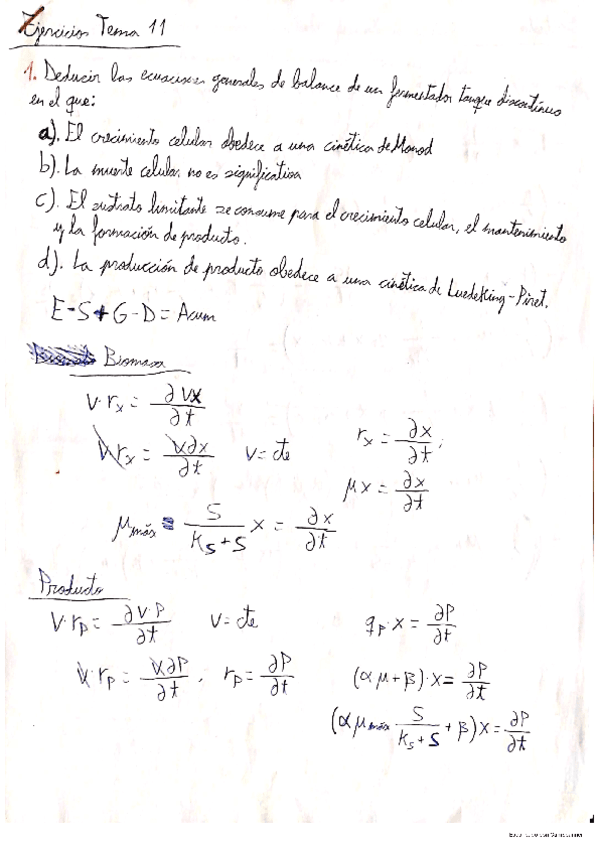 Ejercicios Tema 11
1. Deducir las ecuaciones generales de balance de un fermentador tanque discontinuo
en el que:
a). El crecimiento celular obedece a una cinética de Monod
b). La muerte celular no es significativa
c). El sustrato limitante se consume para el crecimiento celular, el mantenimiento
y la formación de producto.
d). La producción de producto obedece a una cinética de Luedeking-Piret.
E-S+G-D = Acum
Biomasa
V·rx = ∂Vx/∂t
V·rx = V∂x/∂t V = cte rx = ∂x/∂t;
μx = ∂x/∂t
μmáx S/(Ks+S) x = ∂x/∂t
Producto
V·rp = ∂V·P/∂t V = cte qp·x = ∂P/∂t
V·rp = V∂P/∂t, rp = ∂P/∂t (αμ+β)·x = ∂P/∂t
(αμmáx S/(Ks+S) + β)x = ∂P/∂t